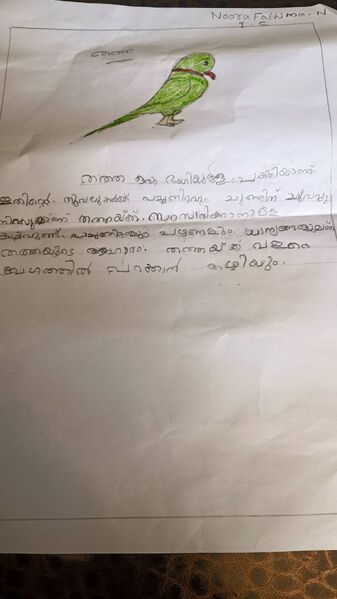 Noora Fathima. N
I C
തത്ത
തത്ത ഒരു ഭംഗിയുള്ള പക്ഷിയാണ്
ഇതിന്റെ തൂവലുകൾക്ക് പച്ചനിറവും ചുണ്ടിന് ചുവപ്പു
നിറവുമാണ് തത്തയ്ക്ക്. സംസാരിക്കാനുള്ള
കഴിവുണ്ട്. പഴങ്ങളും ധാന്യങ്ങളുമാണ്
തത്തയുടെ ആഹാരം. തത്തയ്ക്ക് വളരെ
വേഗത്തിൽ പറക്കാൻ കഴിയും.